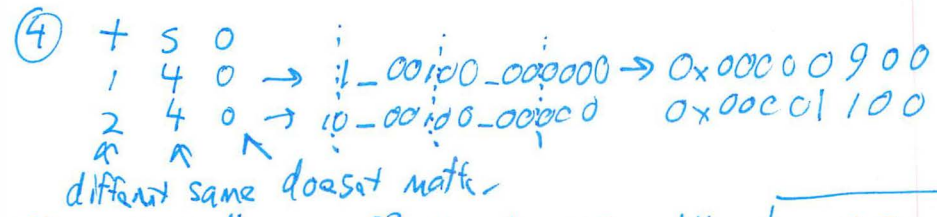 ④ t s o
1 4 0 → 1_00100_000000 → 0x00000900
2 4 0 → 10_00100_000000 0x00001100
different same doesn't matter